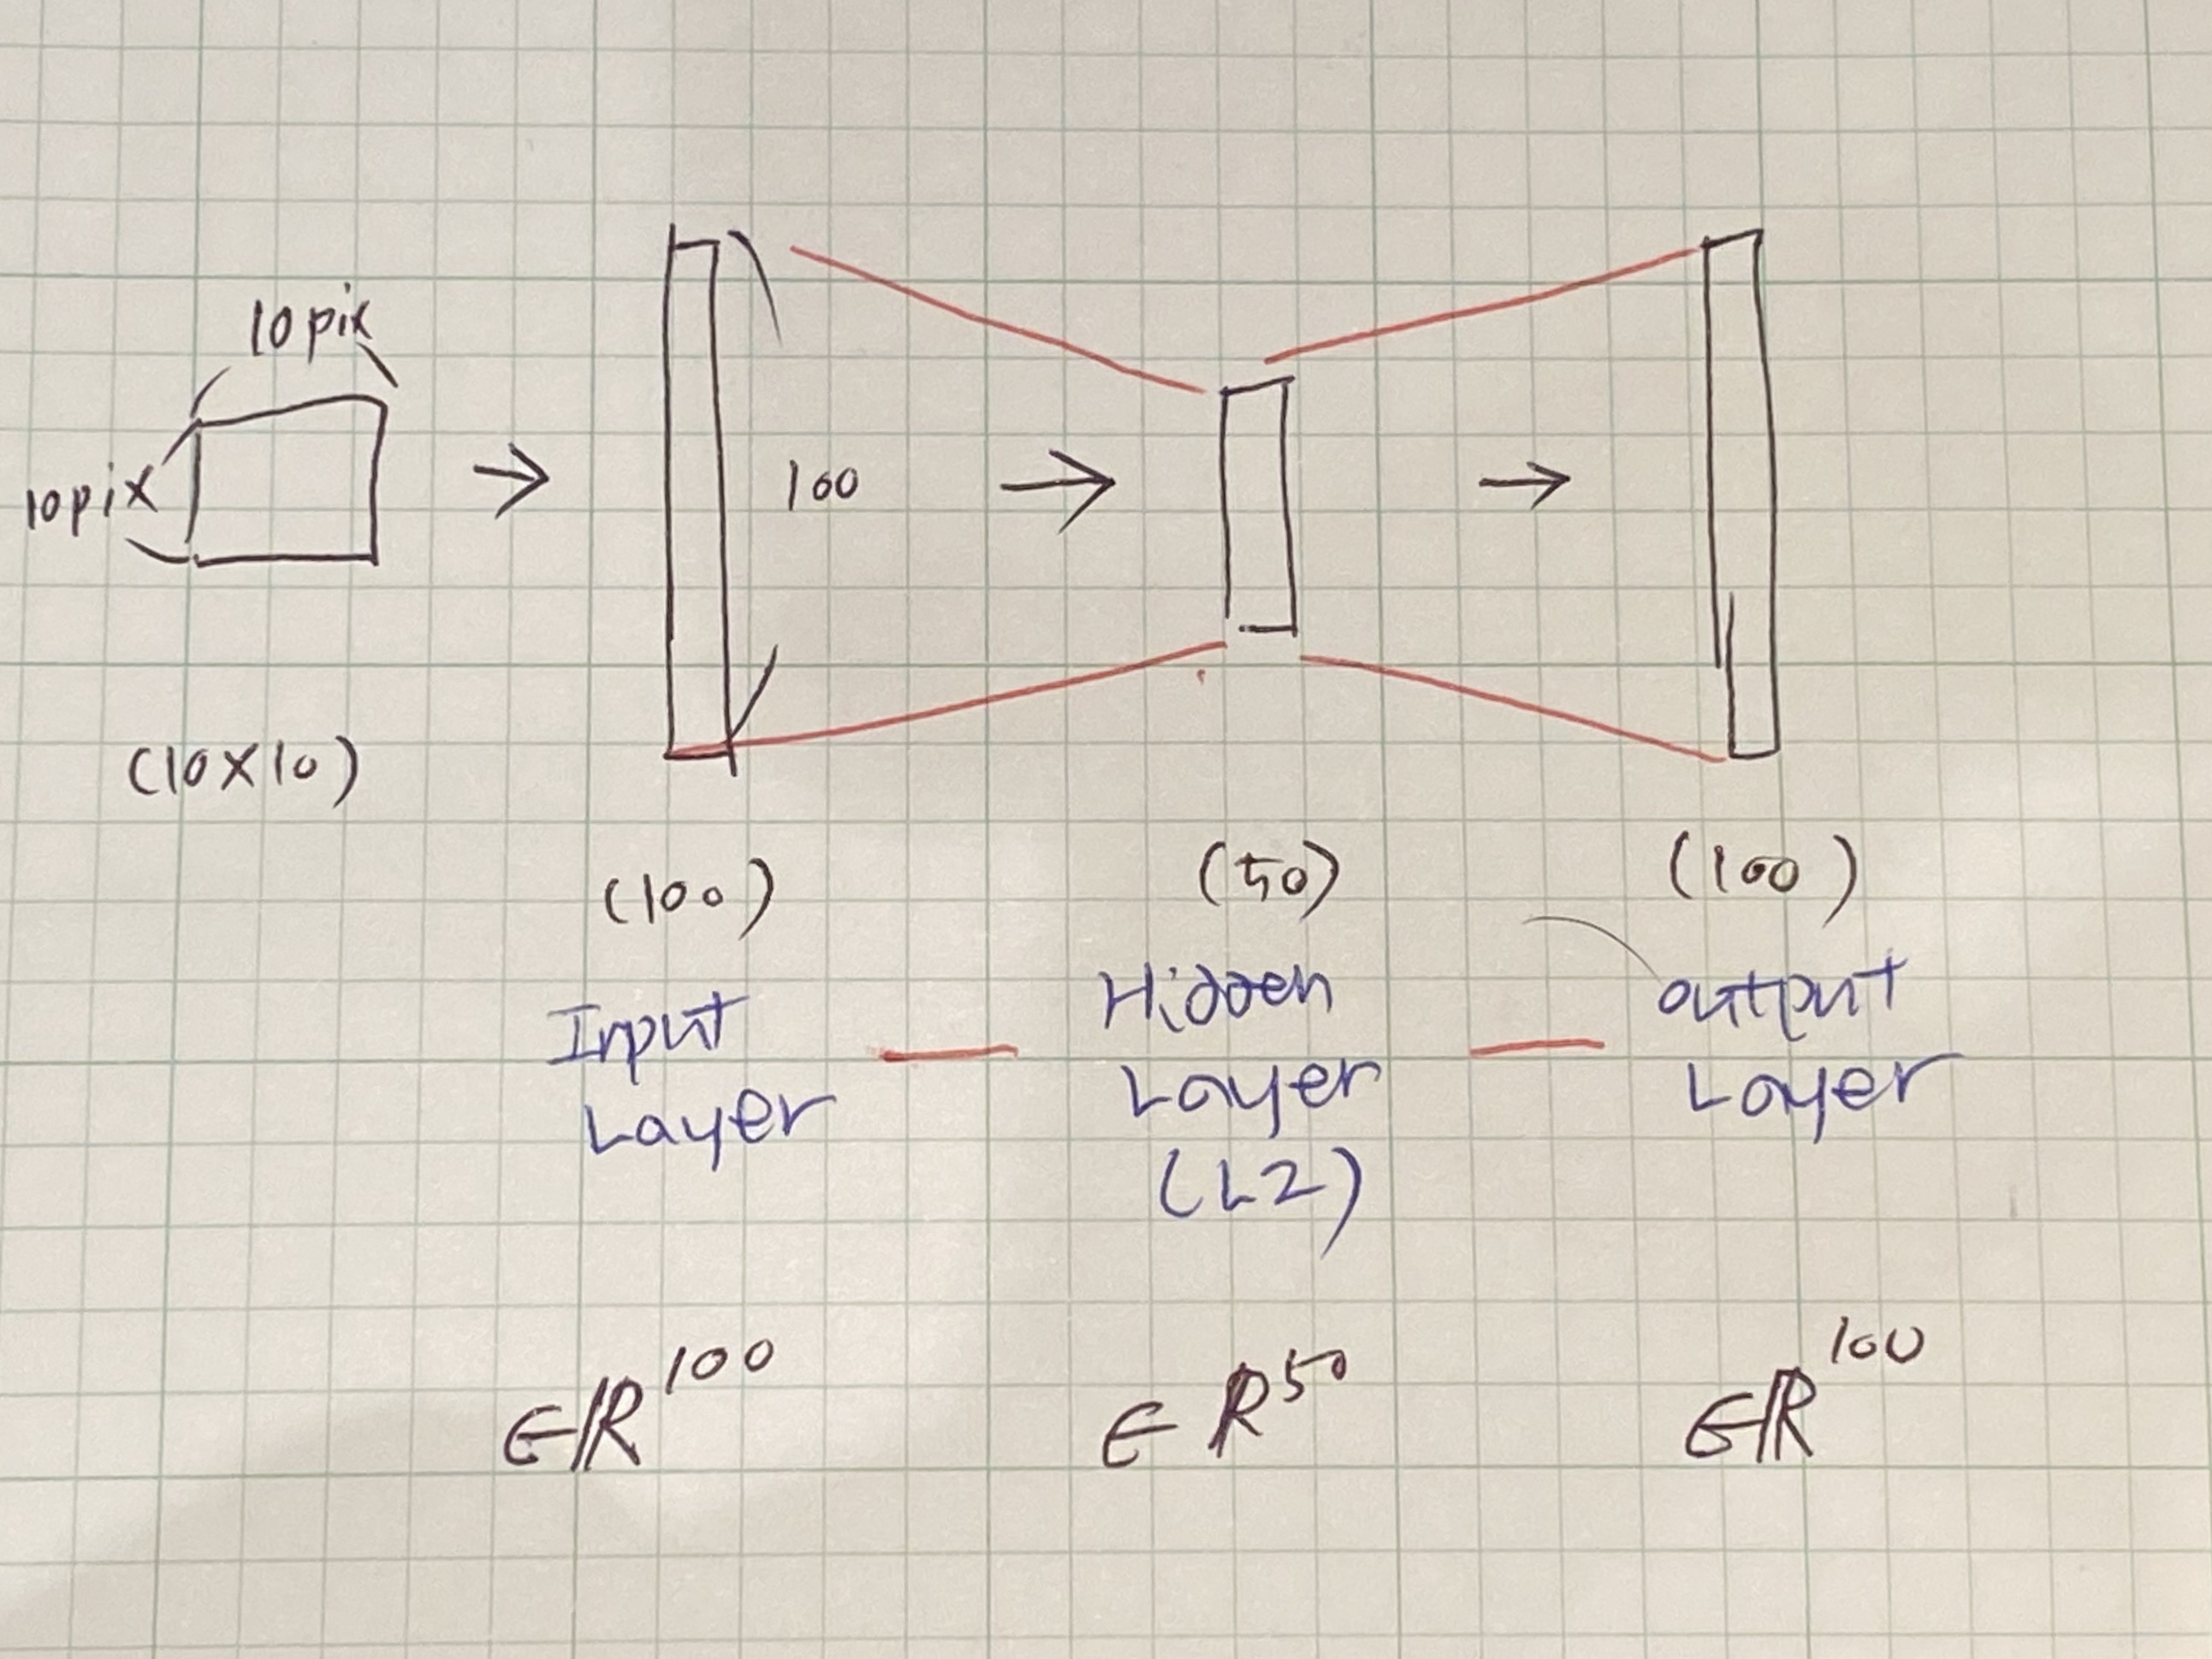 10pix
10pix
100
(10×10)
(100)
(50)
(100)
Input
Layer
Hidden
Layer
(L2)
output
Layer
∈ℝ¹⁰⁰
∈ ℝ⁵⁰
∈ℝ¹⁰⁰